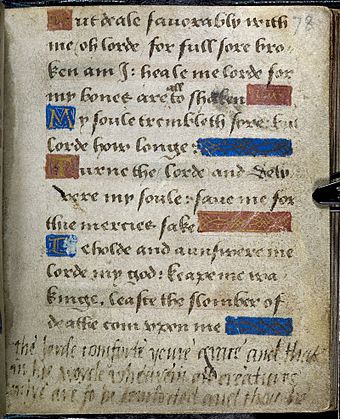 78
But deale favorably with
me, oh lorde for full sore bro-
ken am I: heale me lorde for
my bones are all to shaken
My soule trembleth sore: but
lorde how longe:
Turne the lorde and dely-
vere my soule: save me for
thie mercies sake
Beholde and aunswere me
lorde my god: keape me wa-
kinge, leaste the slomber of
deathe com vpon me
The lorde comforte youre grace and that
in his worde whearein all creatures
onlye are to be comforted and